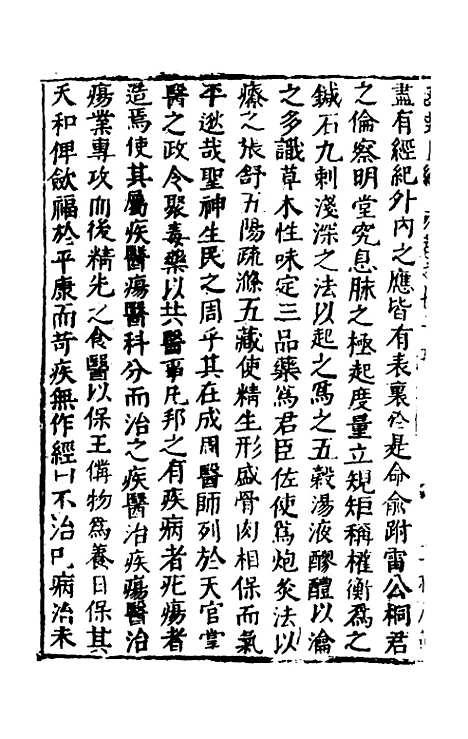 盡有經紀外内之應皆有表裏於是命俞跗雷公桐君
之倫察明堂究息脉之極起度量立規矩稱權衡爲之
鍼石九刺淺深之法以起之爲之五穀湯液醪醴以瀹
之多識草木性味定三品藥爲君臣佐使爲炮炙法以
療之張舒五陽疏滌五藏使精生形盛骨肉相保而氣
平逖哉聖神生民之周乎其在成周醫師列於天官掌
醫之政令聚毒藥以共醫事凡邦之有疾病者疕瘍者
造焉使其屬疾醫瘍醫科分而治之疾醫治疾瘍醫治
瘍業專攻而後精先之食醫以保王僎物爲養日保其
天和俾歛福於平康而苛疾無作經曰不治已病治未